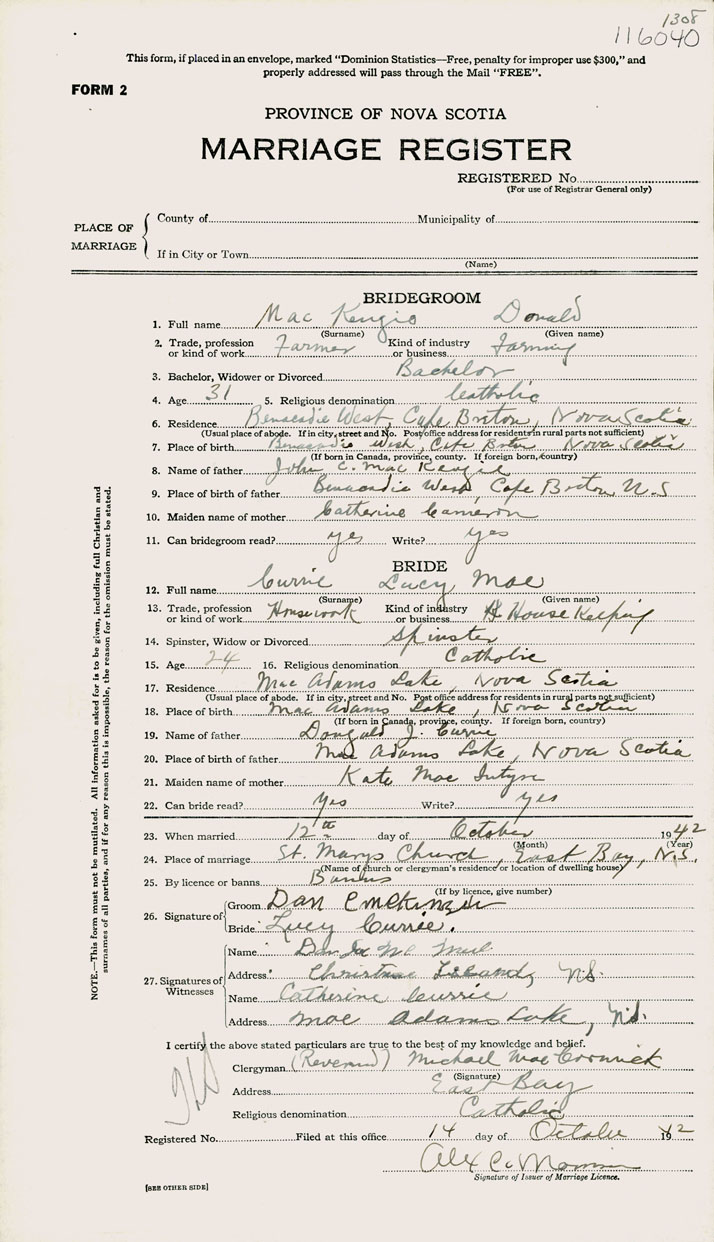 1308
116040
This form, if placed in an envelope, marked "Dominion Statistics—Free, penalty for improper use $300," and
properly addressed will pass through the Mail "FREE".
FORM 2
PROVINCE OF NOVA SCOTIA
MARRIAGE REGISTER
REGISTERED No.
(For use of Registrar General only)
PLACE OF MARRIAGE
County of Municipality of
If in City or Town
(Name)
BRIDEGROOM
1. Full name Mac Kenzie Donald
(Surname) (Given name)
2. Trade, profession or kind of work Farmer Kind of industry or business Farming
3. Bachelor, Widower or Divorced Bachelor
4. Age 31 5. Religious denomination Catholic
6. Residence Benacadie West, Cape Breton, Nova Scotia
(Usual place of abode. If in city, street and No. Post office address for residents in rural parts not sufficient)
7. Place of birth Benacadie West, Cape Breton Nova Scotia
(If born in Canada, province, county. If foreign born, country)
8. Name of father John C. Mac Kenzie
9. Place of birth of father Benacadie West, Cape Breton N.S
10. Maiden name of mother Catherine Cameron
11. Can bridegroom read? yes Write? yes
BRIDE
12. Full name Currie Lucy Mae
(Surname) (Given name)
13. Trade, profession or kind of work Housework Kind of industry or business House Keeping
14. Spinster, Widow or Divorced Spinster
15. Age 24 16. Religious denomination Catholic
17. Residence Mac Adams Lake, Nova Scotia
(Usual place of abode. If in city, street and No. Post office address for residents in rural parts not sufficient)
18. Place of birth Mac Adams Lake, Nova Scotia
(If born in Canada, province, county. If foreign born, country)
19. Name of father Dougald J. Currie
20. Place of birth of father Mac Adams Lake, Nova Scotia
21. Maiden name of mother Kate Mac Intyre
22. Can bride read? Yes Write? yes
23. When married 12th day of October 1942
(Month) (Year)
24. Place of marriage St. Marys Church, East Bay, N.S.
(Name of church or clergyman's residence or location of dwelling house)
25. By licence or banns Banns
(If by licence, give number)
26. Signature of
Groom Dan
Bride Lucy Currie.
27. Signatures of Witnesses
Name Dan
Address Christmas Island, N.S.
Name Catherine Currie
Address Mac Adams Lake, N.S.
I certify the above stated particulars are true to the best of my knowledge and belief.
Clergyman (Reverend) Michael MacCormick
(Signature)
Address East Bay
Religious denomination Catholic
Registered No. Filed at this office 14 day of October 1942
Alex
Signature of Issuer of Marriage Licence.
[SEE OTHER SIDE]
NOTE.—This form must not be mutilated. All information asked for is to be given, including full Christian and
surnames of all parties, and if for any reason this is impossible, the reason for the omission must be stated.